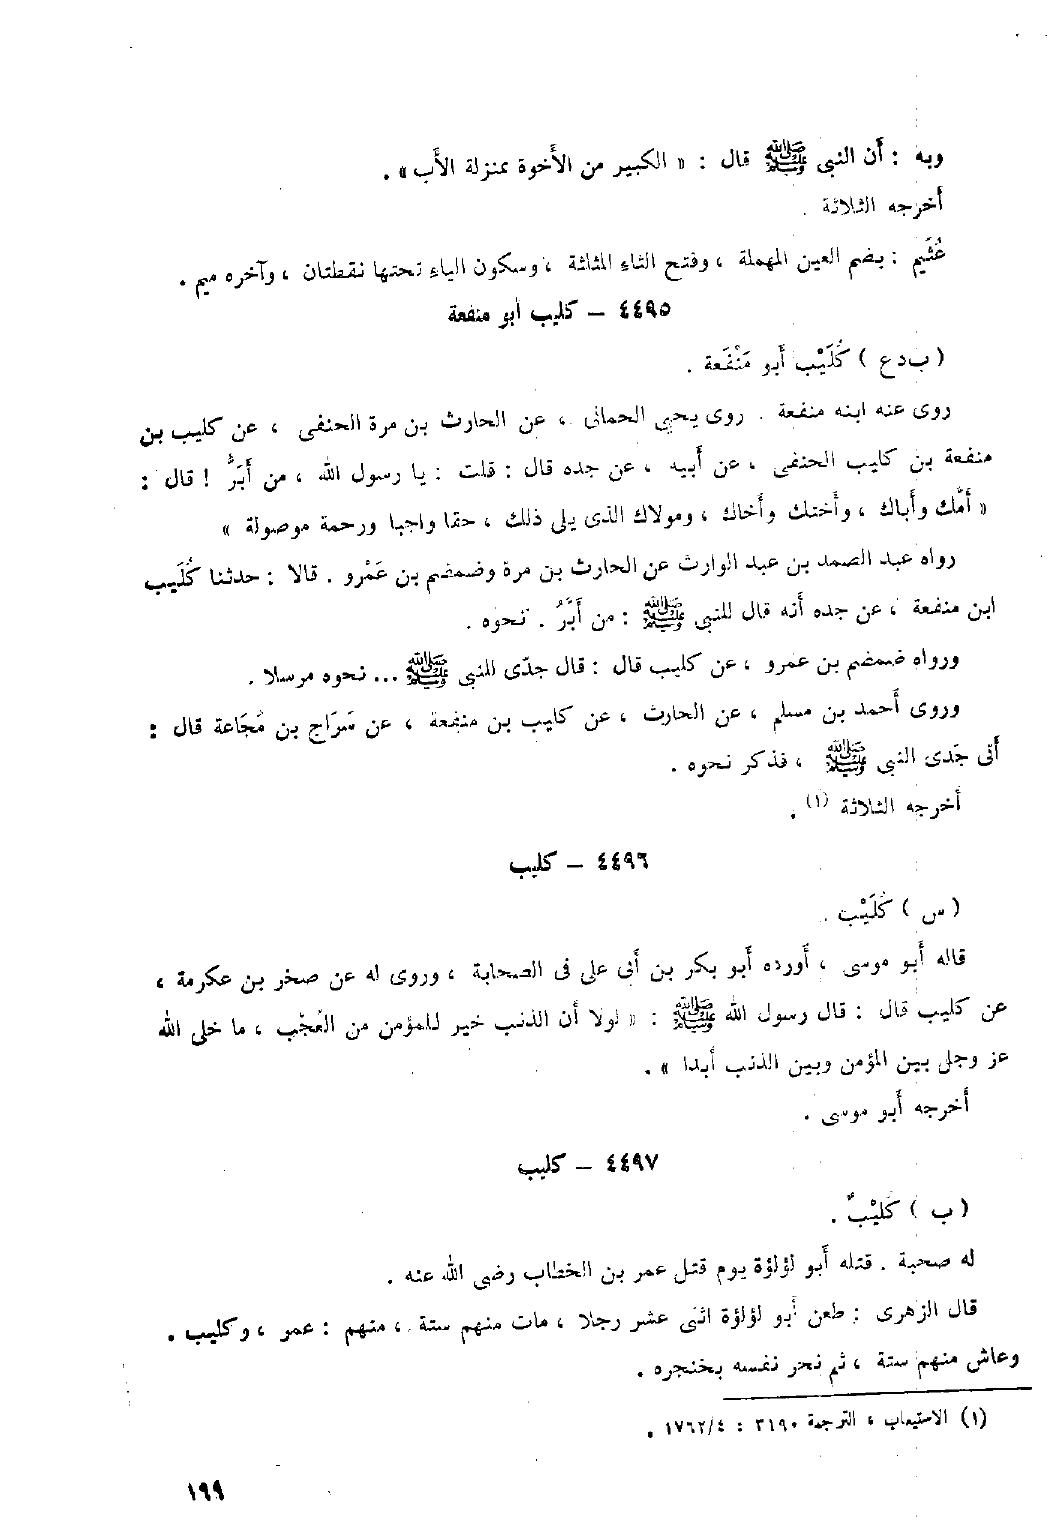 وبه : أن النبى ﷺ قال : « الكبير من الأخوة بمنزلة الأب » .
أخرجه الثلاثة .
عُثَيم : بضم العين المهملة ، وفتح الثاء المثلثة ، وسكون الياء تحتها نقطتان ، وآخره ميم .
٤٤٩٥ – كليب أبو منفعة
( ب د ع ) كُلَيْب أبو مَنْفَعة .
روى عنه ابنه منفعة . روى يحيى الحمانى ، عن الحارث بن مرة الحنفى ، عن كليب بن
منفعة بن كليب الحنفى ، عن أبيه ، عن جده قال : قلت : يا رسول الله ، من أَبَرُّ ! قال :
« أُمَّك وأباك ، وأختك وأخاك ، ومولاك الذى يلى ذلك ، حقا واجبا ورحمة موصولة »
رواه عبد الصمد بن عبد الوارث عن الحارث بن مرة وضمضم بن عَمْرو . قالا : حدثنا كُلَيب
ابن منفعة ، عن جده أنه قال للنبى ﷺ : من أَبَرُّ . نحوه .
ورواه ضمضم بن عمرو ، عن كليب قال : قال جدّى للنبى ﷺ ... نحوه مرسلا .
وروى أحمد بن مسلم ، عن الحارث ، عن كليب بن منفعة ، عن سَرَاج بن مُجَاعة قال :
أتى جَدى النبى ﷺ ، فذكر نحوه .
أخرجه الثلاثة (١) .
٤٤٩٦ – كليب
( س ) كُلَيْب .
قاله أبو موسى ، أورده أبو بكر بن أبى على فى الصحابة ، وروى له عن صخر بن عكرمة ،
عن كليب قال : قال رسول الله ﷺ : « لولا أن الذنب خير للمؤمن من العُجْب ، ما خلى الله
عز وجل بين المؤمن وبين الذنب أبدا » .
أخرجه أبو موسى .
٤٤٩٧ – كليب
( ب ) كُلَيْبٌ .
له صحبة . قتله أبو لؤلؤة يوم قتل عمر بن الخطاب رضى الله عنه .
قال الزهرى : طعن أبو لؤلؤة اثنى عشر رجلا ، مات منهم ستة ، منهم : عمر ، وكليب .
وعاش منهم ستة ، ثم نحر نفسه بخنجره .
(١) الاستيعاب ، الترجمة ٣١٩٠ : ١٧٦٢/٤ .
١٩٩